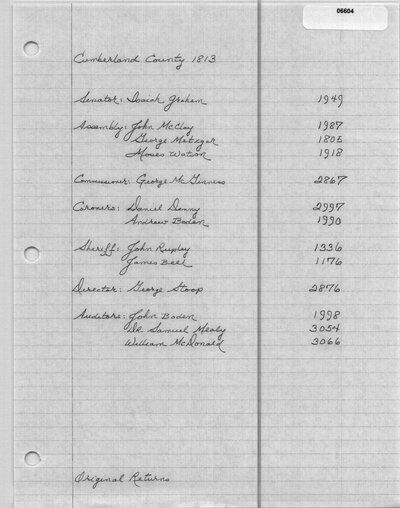 06604
Cumberland County 1813
Senator: Isaiah Graham 1949
Assembly: John McClay 1987
George Metzgar 1805
Moses Watson 1918
Commissioner: George McGinness 2867
Coroners: Daniel Denny 2997
Andrew Boden 1990
Sheriff: John Rupley 1336
James Bell 1176
Director: George Stoop 2876
Auditors: John Boden 1998
Dr. Samuel Mealy 3054
William McDonald 3066
Original Returns